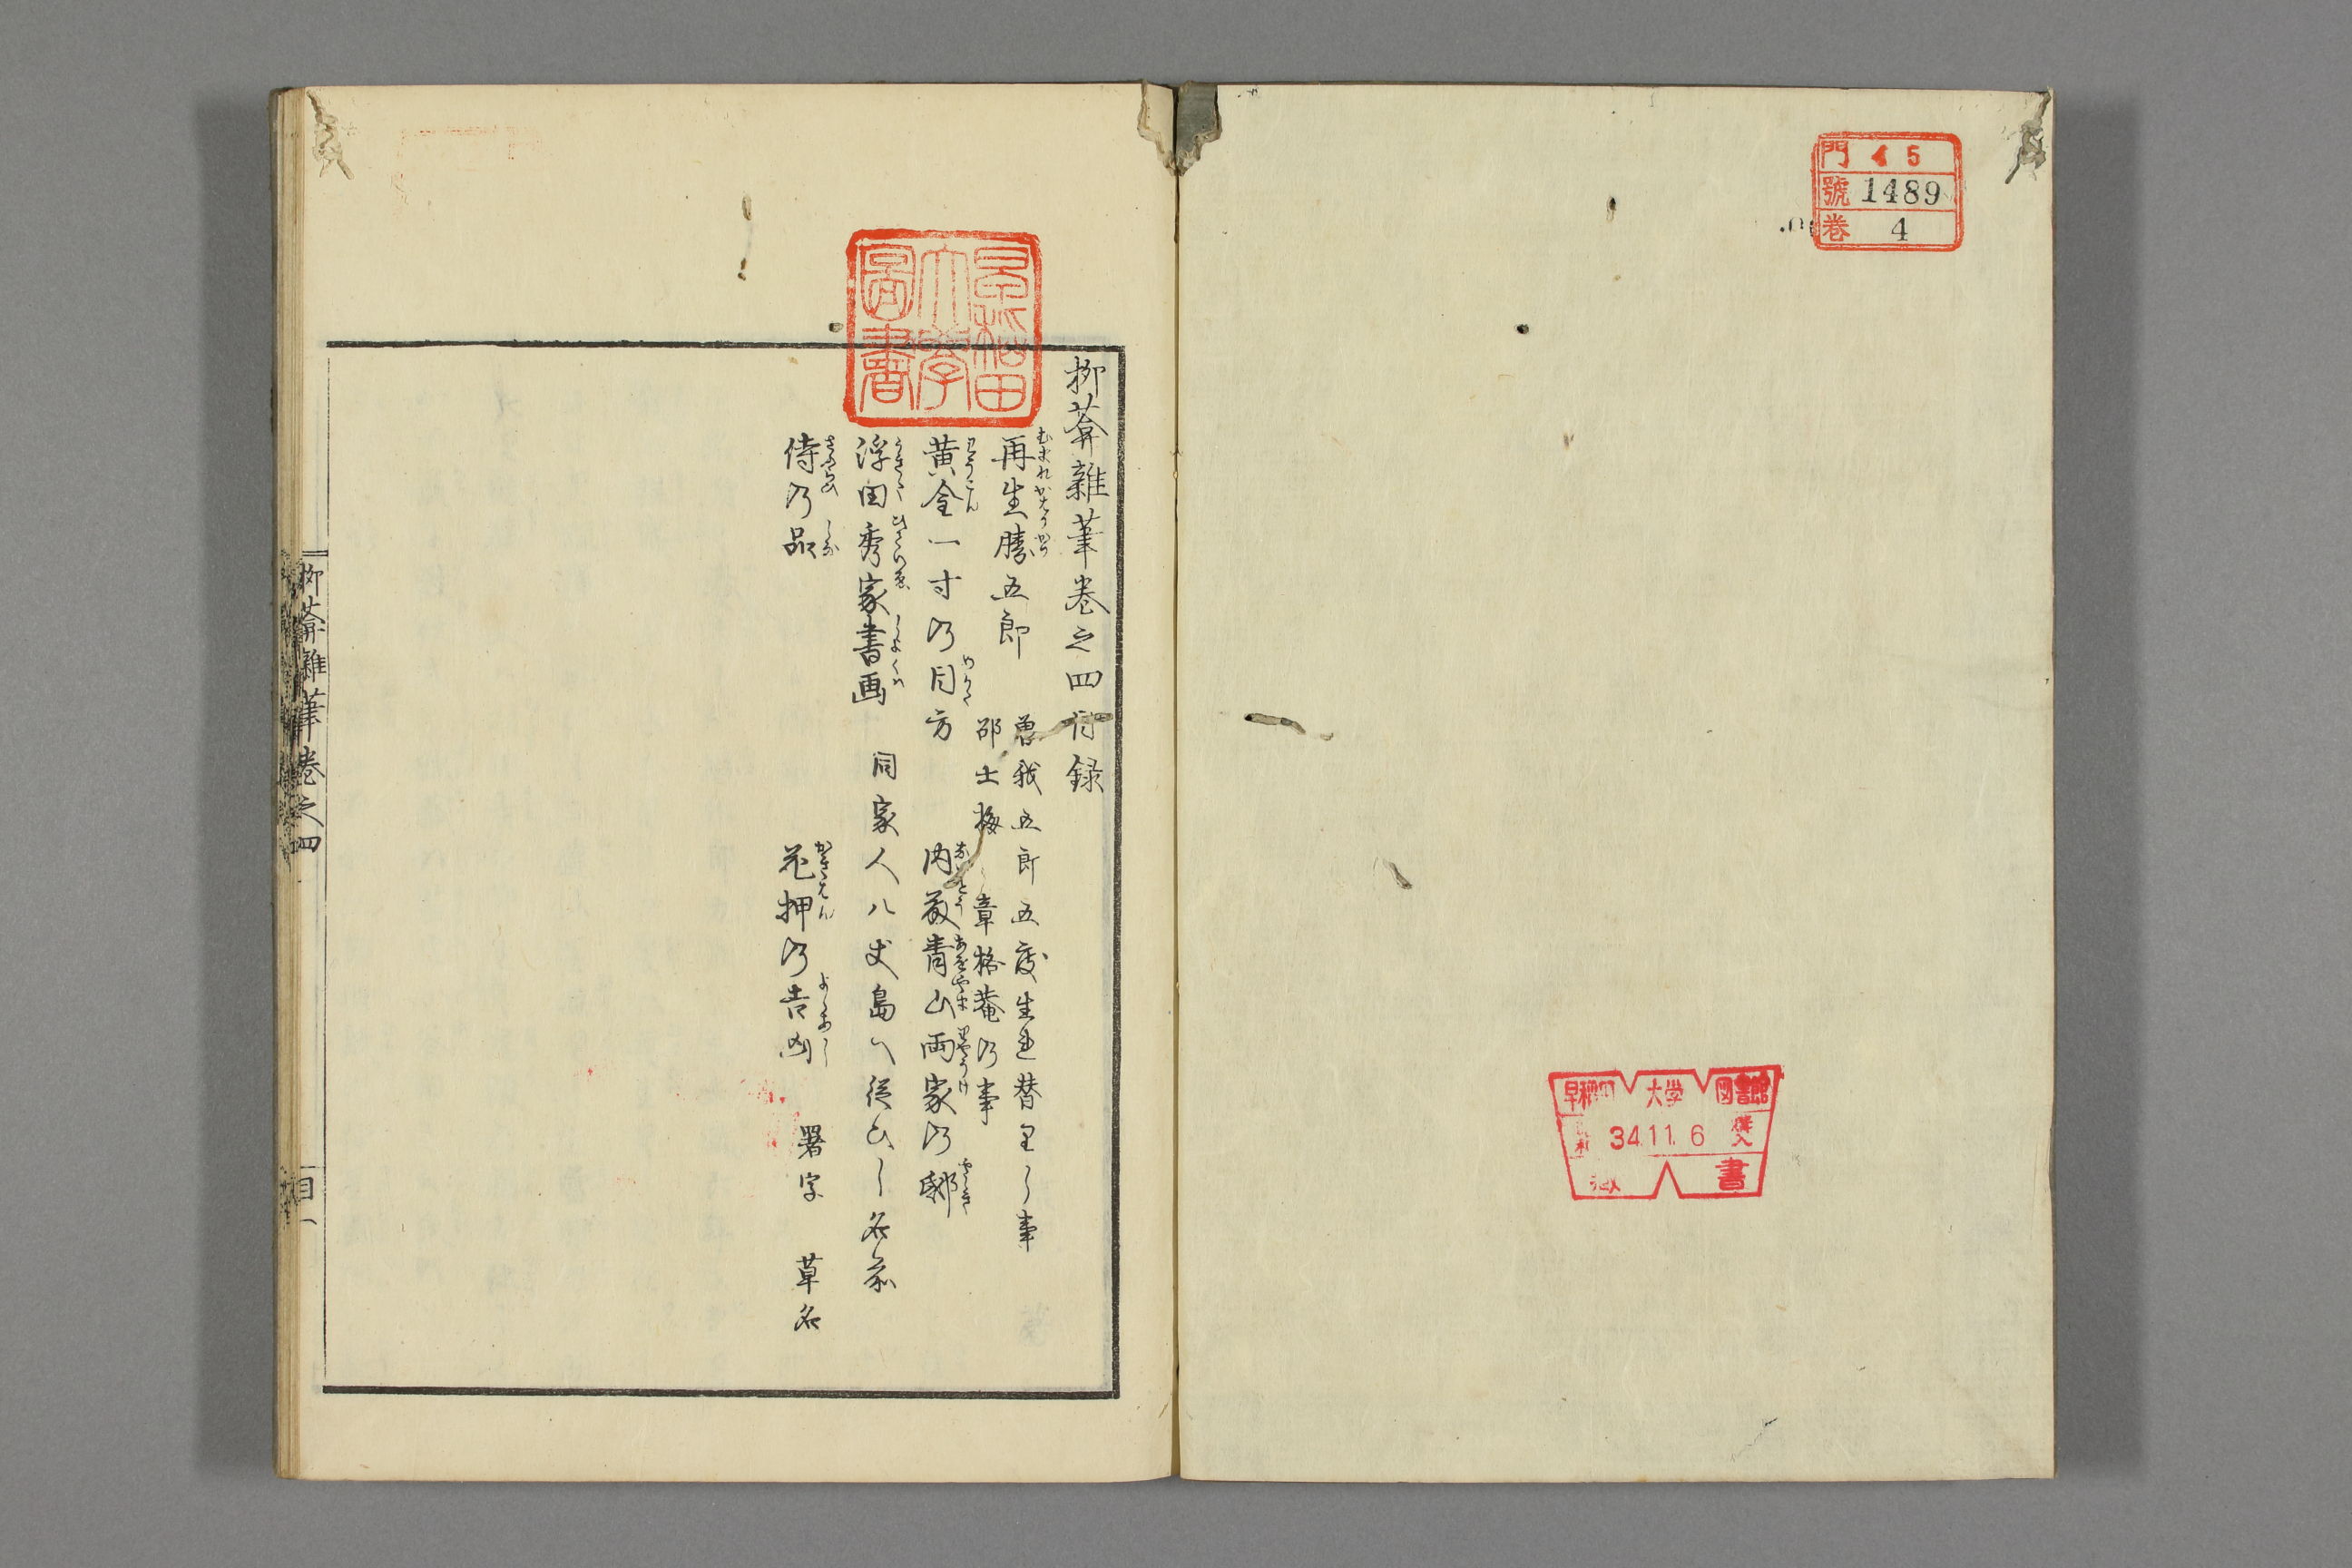 門 イ 5
號 1489
巻 4
早稲田 大学 図書館
34.11.6 購入
書
早稲田大學圖書
柳葊雜筆巻之四目録
再生勝五郎
曽我五郎五度生連替里し事
邵士梅
章格菴乃事
黄金一寸乃目方
内藤青山両家乃邸
浮田秀家書画
同家人八丈島へ従ひし名前
侍乃品
花押乃吉凶
署字
草名
柳葊雜筆巻之四
目一